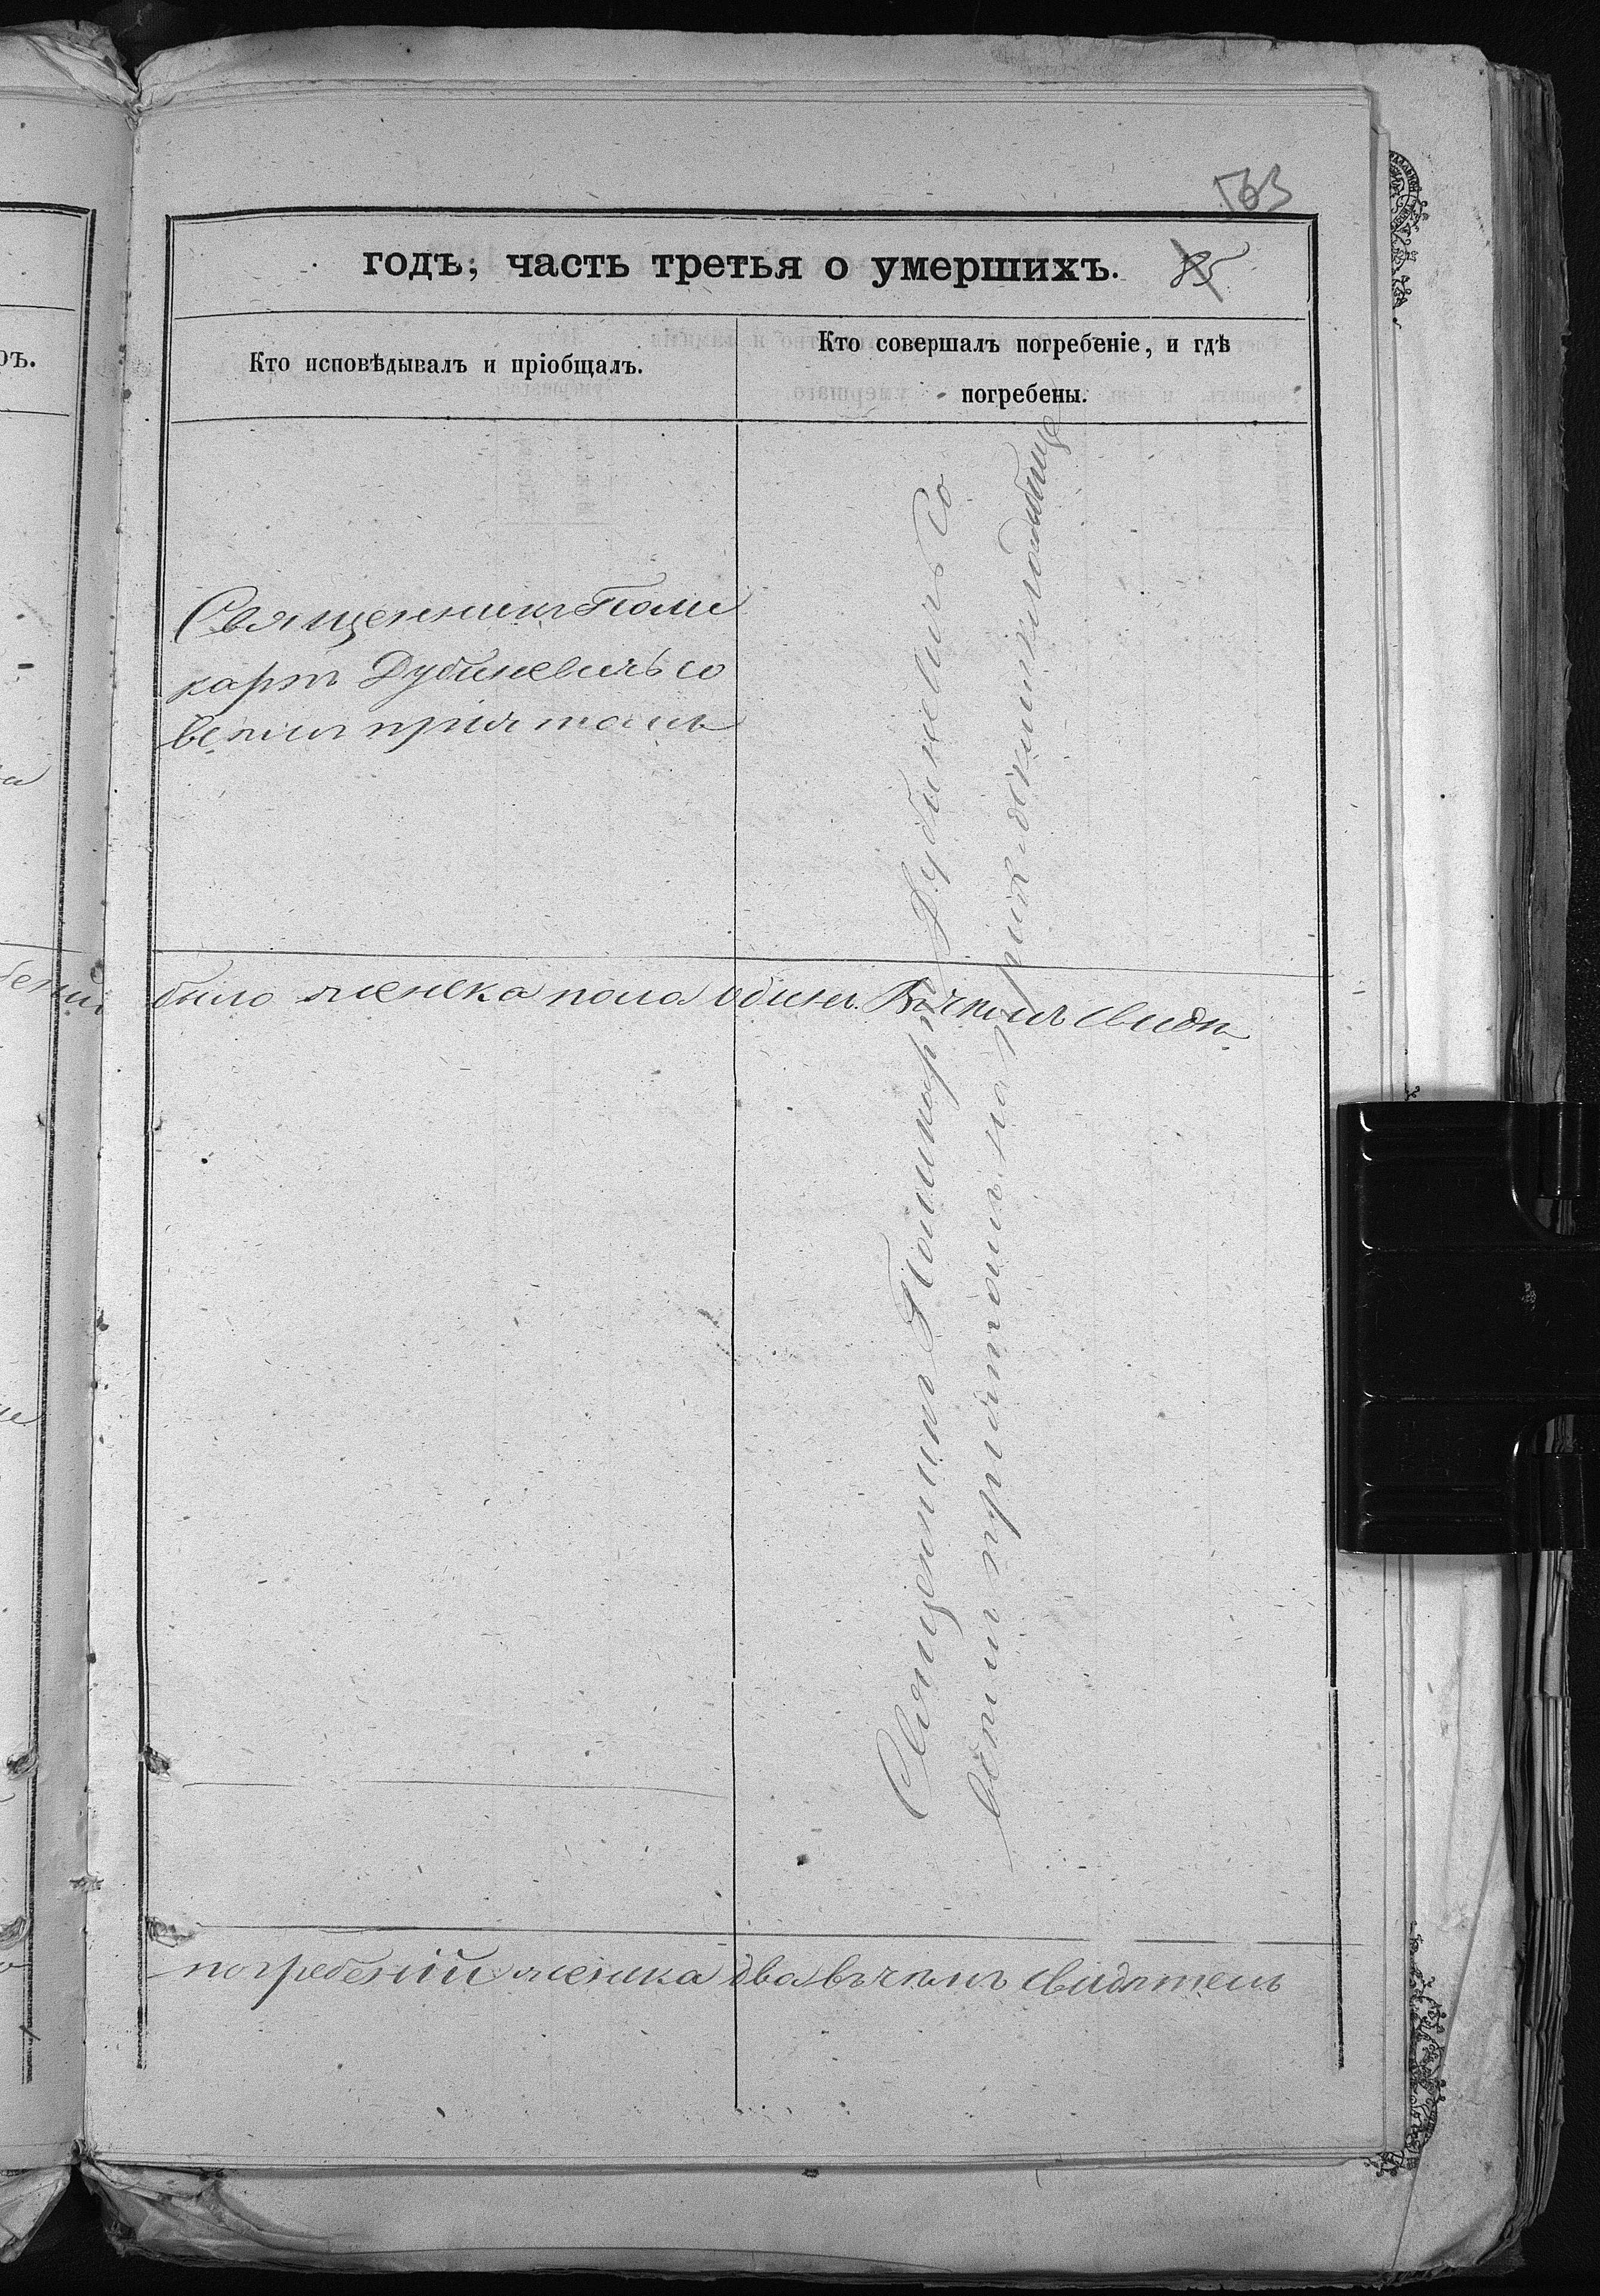 563
годъ, часть третья о умершихъ. 85
Кто исповѣдывалъ и пріобщалъ.
Кто совершалъ погребеніе, и гдѣ
погребены.
Священникъ Поли
карпъ Дубиневичъ со
всѣмъ причтомъ
Священникъ Поликарпъ Дубиневичъ со
всѣмъ причтомъ на приходскомъ кладбище
было женска пола одинъ Въ чемъ свидѣ
погребеній женска два въ чемъ свидѣтель
ръ.